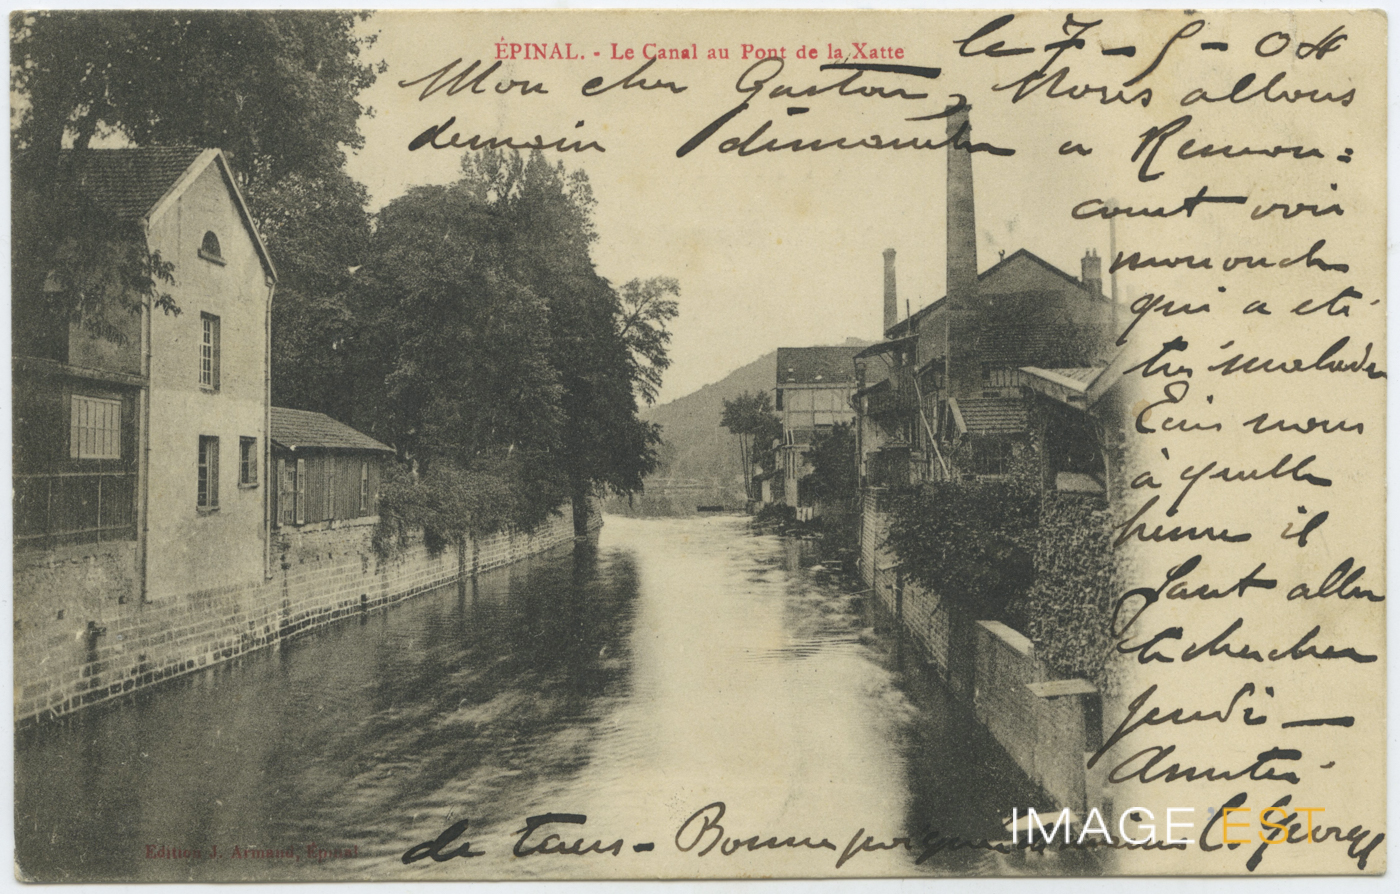 ÉPINAL. - Le Canal au Pont de la Xatte
le 7-5-04
Mon cher Gaston, Nous allons
demain dimanche a Remon=
court voir
mon oncle
qui a été
très malade
Ecris nous
à quelle
heure il
faut aller
te chercher
jeudi —
Amitié
de tous - Bonne poignée de mains Georges
Edition J. Armand, Épinal
IMAGE'EST